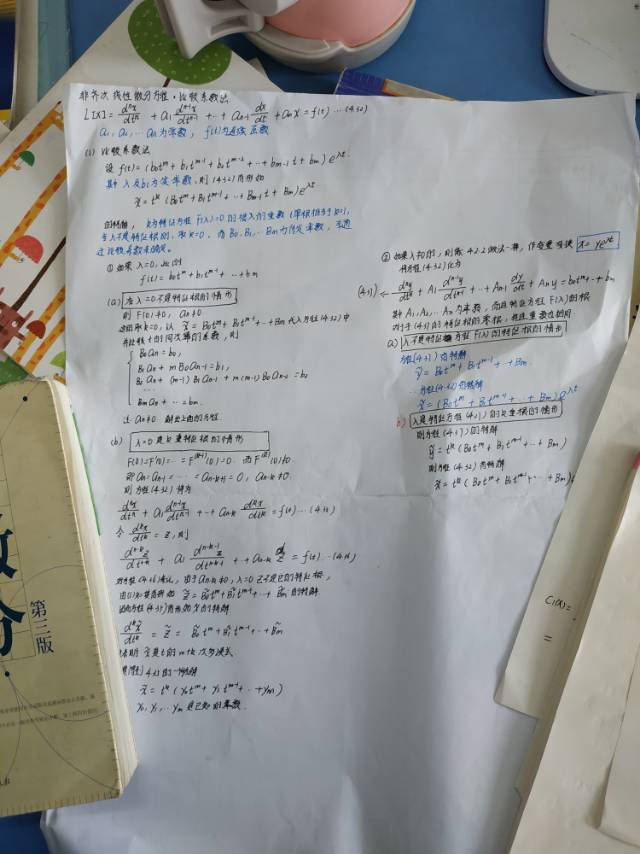 非齐次线性微分方程·比较系数法
L[x] = dⁿx/dtⁿ + a₁ dⁿ⁻¹x/dtⁿ⁻¹ + ··· + aₙ₋₁ dx/dt + aₙx = f(t) ···(4.32)
a₁, a₂, ··· aₙ为常数, f(t)为连续函数
(1) 比较系数法
设 f(t) = (b₀tᵐ + b₁tᵐ⁻¹ + b₂tᵐ⁻² + ··· + bₘ₋₁t + bₘ) e^λt.
其中 λ及bᵢ为实常数, 则 (4.32) 有形如
x̃ = tᵏ (B₀tᵐ + B₁tᵐ⁻¹ + ··· + Bₘ₋₁t + Bₘ) e^λt.
的特解, k为特征方程 F(λ)=0 的根λ的重数 (单根相当于k=1),
当λ不是特征根时, 取k=0, 而 B₀, B₁, ··· Bₘ为待定常数, 可通
过比较系数来确定。
① 如果λ=0, 此时
f(t) = b₀tᵐ + b₁tᵐ⁻¹ + ··· + bₘ
(a) 在λ=0不是特征根的情形
则 F(0)≠0, aₙ≠0
取k=0, 以 x̃ = B₀tᵐ + B₁tᵐ⁻¹ + ··· + Bₘ 代入方程 (4.32) 中
并比较 t 的同次幂的系数, 则
B₀aₙ = b₀,
B₁aₙ + mB₀aₙ₋₁ = b₁,
B₂aₙ + (m-1)B₁aₙ₋₁ + m(m-1)B₀aₙ₋₂ = b₂
···
Bₘaₙ + ··· = bₘ.
aₙ≠0 解出上面的方程.
(b) λ=0是k重特征根的情形
F(0) = F'(0) = ··· = F⁽ᵏ⁻¹⁾(0) = 0. 而F⁽ᵏ⁾(0)≠0
即 aₙ = aₙ₋₁ = ··· = aₙ₋ₖ₊₁ = 0, aₙ₋ₖ≠0
则方程 (4.32) 将为
dⁿx/dtⁿ + a₁ dⁿ⁻¹x/dtⁿ⁻¹ + ··· + aₙ₋ₖ dᵏx/dtᵏ = f(t) ···
令 dᵏx/dtᵏ = z, 则
dⁿ⁻ᵏz/dtⁿ⁻ᵏ + a₁ dⁿ⁻ᵏ⁻¹z/dtⁿ⁻ᵏ⁻¹ + ··· + aₙ₋ₖ z = f(t) ···
aₙ₋ₖ≠0, λ=0 不是它的特征根,
z̃ = B̃₀tᵐ + B̃₁tᵐ⁻¹ + ··· + B̃ₘ 的特解
dᵏx̃/dtᵏ = z̃ = B̃₀tᵐ + B̃₁tᵐ⁻¹ + ··· + B̃ₘ
x̃是t的m+k次多项式.
x̃ = tᵏ (γ₀tᵐ + γ₁tᵐ⁻¹ + ··· + γₘ)
γ₀, γ₁, ··· γₘ 是已知的常数.
② 如果λ≠0, 则像 4.2.2 做法一样, 作变量变换 x = ye^λt
将方程 (4.32) 化为
dⁿy/dtⁿ + A₁ dⁿ⁻¹y/dtⁿ⁻¹ + ··· + Aₙ₋₁ dy/dt + Aₙy = b₀tᵐ + ··· + bₘ
其中 A₁, A₂, ··· Aₙ为常数, 而且特征方程 F(λ) 的根
对应于 的特征根的零根, 且重数也相同.
a) λ不是特征方程 F(λ) 的特征根的情形
有特解
ỹ = B₀tᵐ + B₁tᵐ⁻¹ + ··· + Bₘ.
∴ 方程 (4.32) 有特解
x̃ = (B₀tᵐ + B₁tᵐ⁻¹ + ··· + Bₘ) e^λt
b) λ是特征方程 的k重根的情形
有特解
ỹ = tᵏ (B₀tᵐ + B₁tᵐ⁻¹ + ··· + Bₘ)
则方程 (4.32) 有特解
x̃ = tᵏ (B₀tᵐ + B₁tᵐ⁻¹ + ··· + Bₘ)
第三版